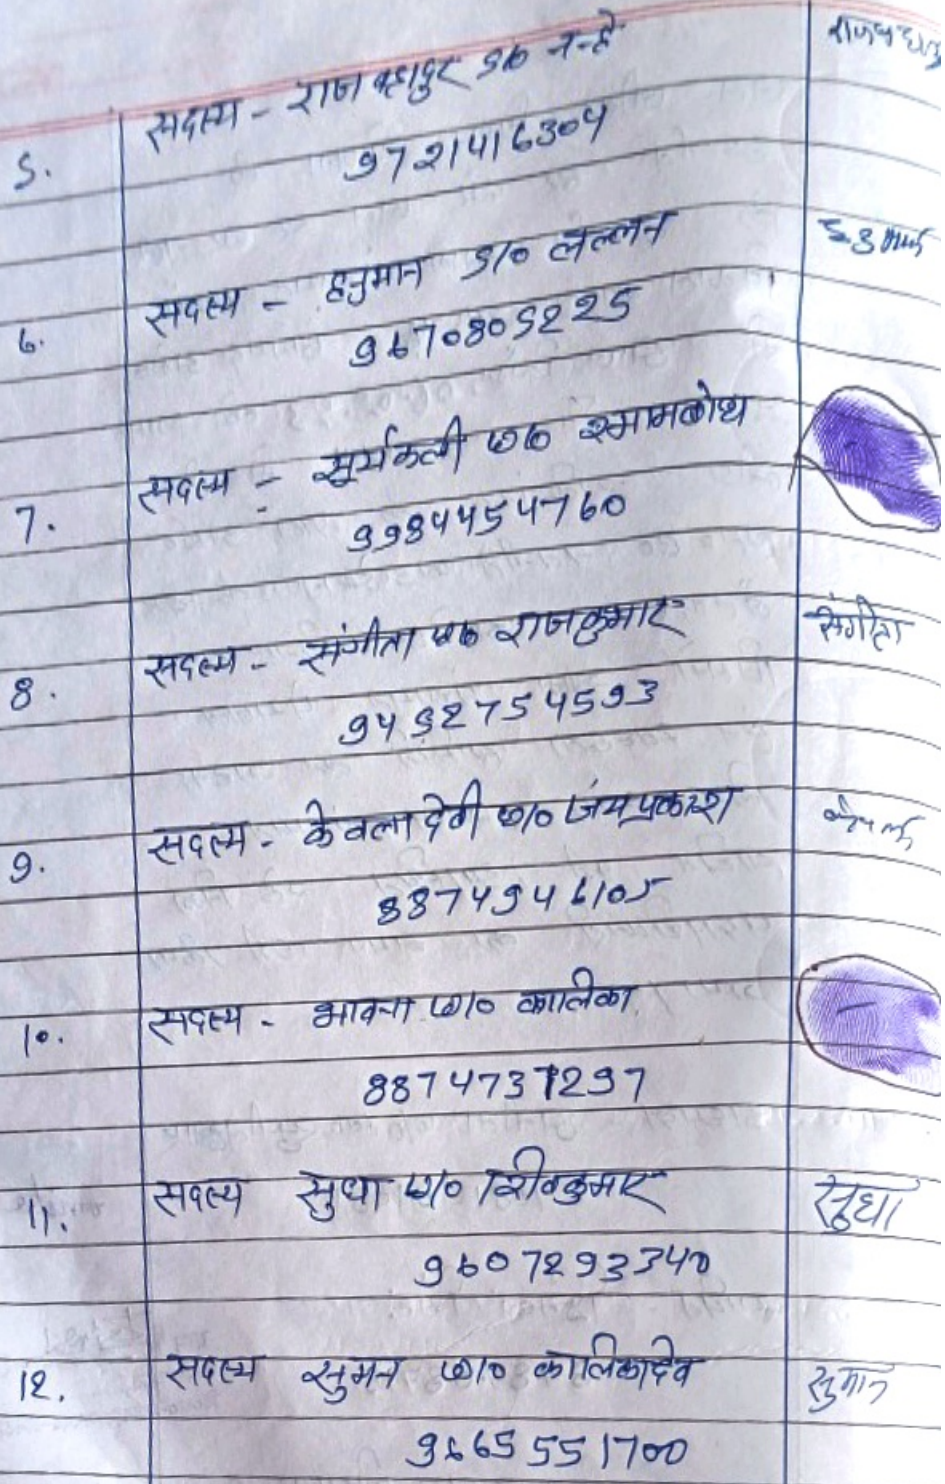 5. सदस्य - राजबहादुर S/o नन्हे
9721416304
6. सदस्य - हनुमान S/o लल्लन
9670805225
7. सदस्य - सूर्यकली W/o श्यामबोध
9984454760
8. सदस्य - संगीता W/o राजकुमार संगीता
9452754593
9. सदस्य - केवला देवी W/o जयप्रकाश
8874946105
10. सदस्य - भावना W/o कालिका
8874737297
11. सदस्य सुधा W/o शिवकुमार सुधा
9607293340
12. सदस्य सुमन W/o कालिकादेव सुमन
9665551700